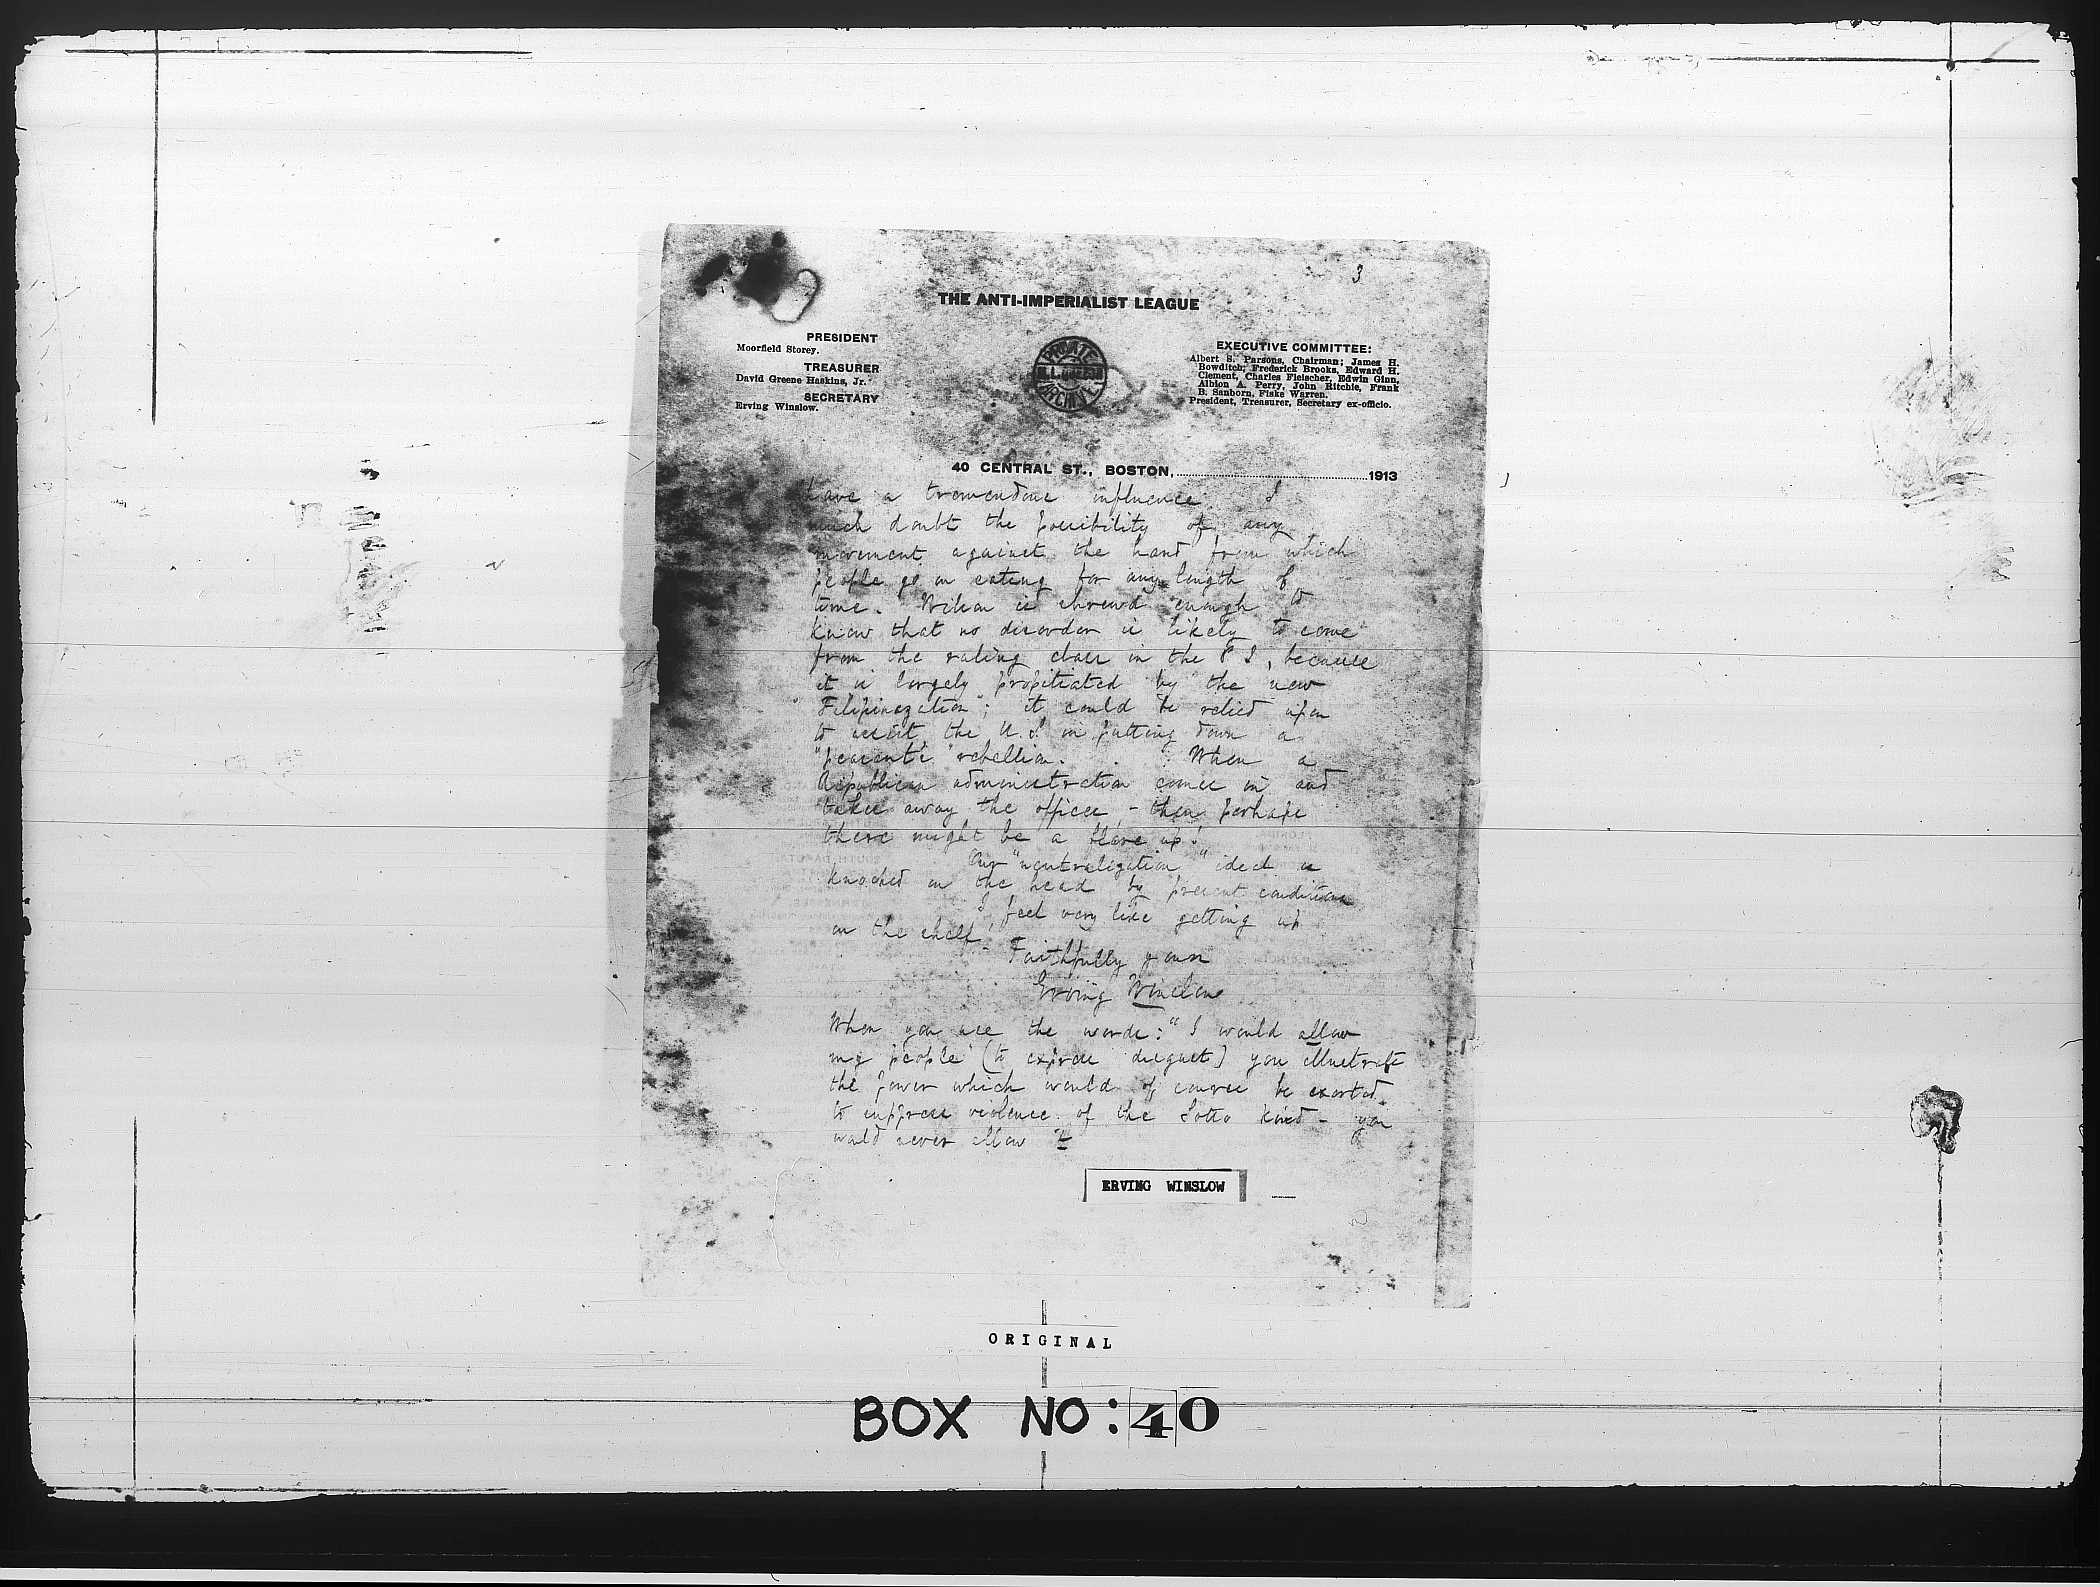 3
THE ANTI-IMPERIALIST LEAGUE
PRESIDENT
Moorfield Storey.
TREASURER
David Greene Haskins, Jr.
SECRETARY
Erving Winslow.
EXECUTIVE COMMITTEE:
Albert S. Parsons, Chairman; James H.
Bowditch; Frederick Brooks, Edward H.
Clement, Charles Fleischer, Edwin Ginn,
Albion A. Perry, John Ritchie, Frank
B. Sanborn, Fiske Warren.
President, Treasurer, Secretary ex-officio.
PRIVATE
ARCHIVE
40 CENTRAL ST., BOSTON, 1913
have a tremendous influence. I
much doubt the possibility of any
movement against the hand from which
people go on eating for any length of
time. Wilson is shrewd enough to
know that no disorder is likely to come
from the ruling class in the P I, because
it is largely propitiated by the new
"Filipinization"; it could be relied upon
to assist the U.S in putting down a
"peasants" rebellion. When a
Republican administration comes in and
takes away the offices, - then perhaps
there might be a flare up!
Our "neutralization" ideal is
knocked on the head by present conditions
I feel very like getting up
on the shelf!
Faithfully yours
Erving Winslow
When you use the words: "I would allow
my people" (to express disgust) you illustrate
the power which would of course be exerted
to suppress violence of the Sotto kind - you
would never allow it
ERVING WINSLOW
ORIGINAL
BOX NO: 40